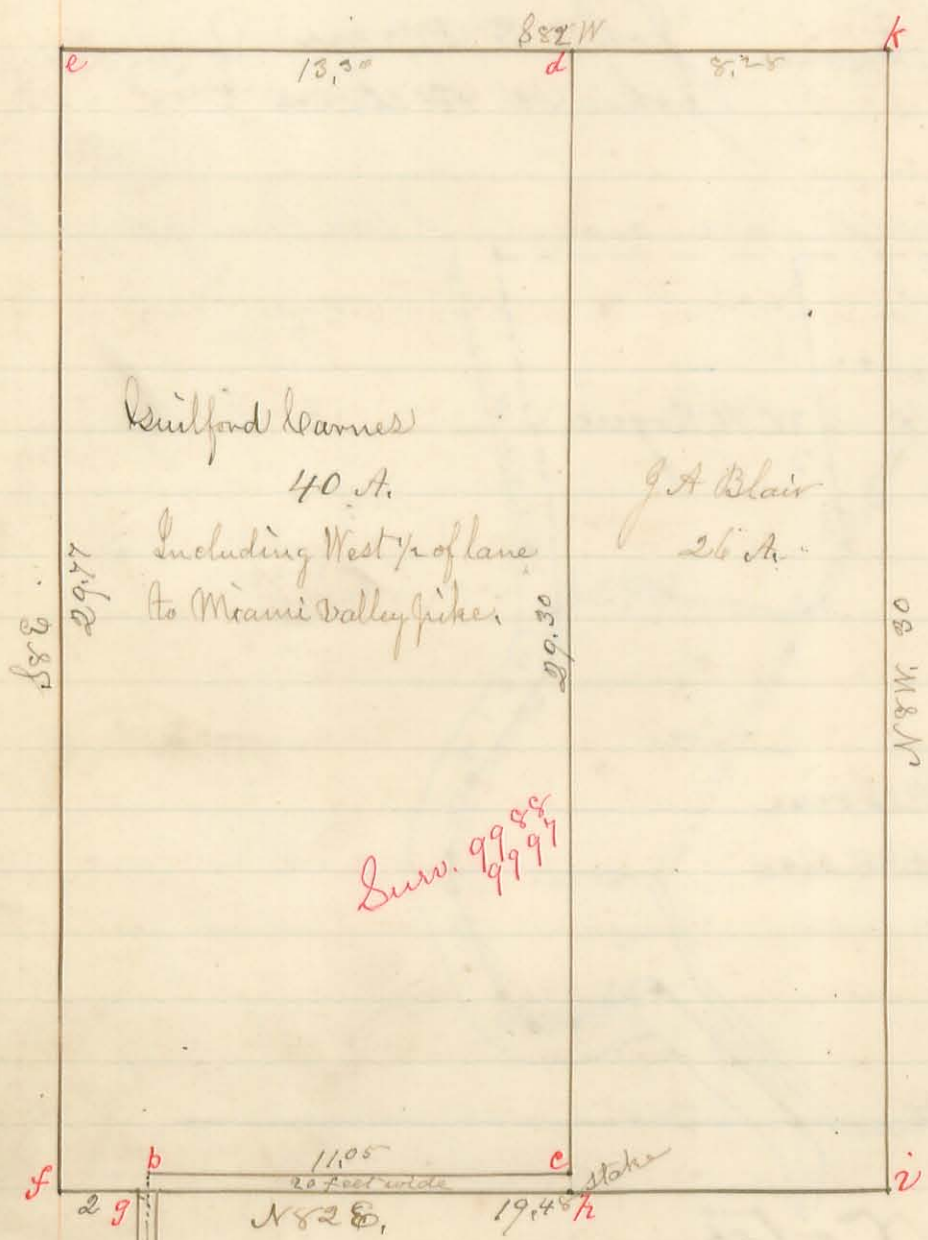 S82W
e
13,30
d
8,28
k
Guilford Carnes
40 A.
Including West 1/2 of lane
to Miami Valley pike.
J A Blair
26 A.
S8E
29.77
29.30
N8W. 30
Surv. 9988
9997
b
11,05
c
stake
20 feet wide
f
2
g
N82E,
19,48
h
i